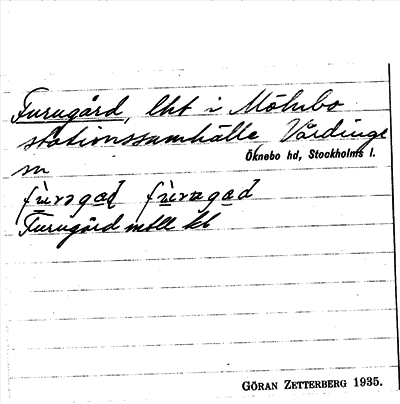 Furugård, lht i Mölnbo
stationssamhälle, Vårdinge
sn Öknebo hd, Stockholms l.
fùrəgaḍ fùrugaḍ
Furugård mtll kt
GÖRAN ZETTERBERG 1935.